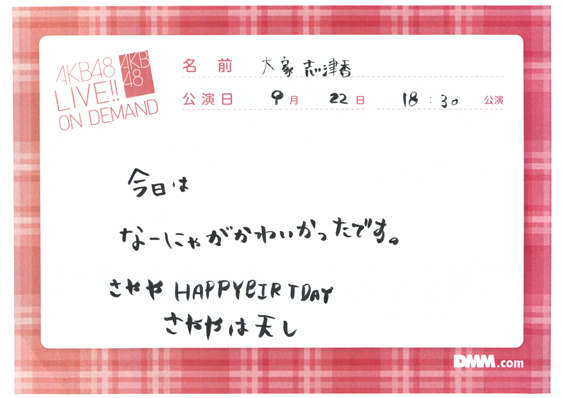 AKB48
LIVE!!
ON DEMAND
AKB
48
名前 大家志津香
公演日 9月 22日 18:30 公演
今日は
なーにゃがかわいかったです。
さやや HAPPYBIRTDAY
さややは天し
DMM.com